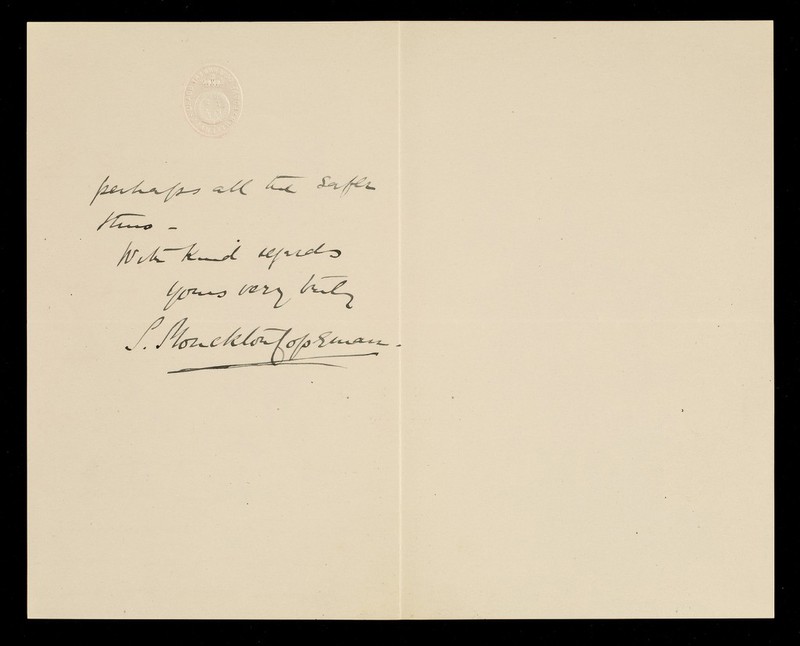 perhaps all the safer
thus -
With kind regards
yours very truly
S. Monckton Copeman.